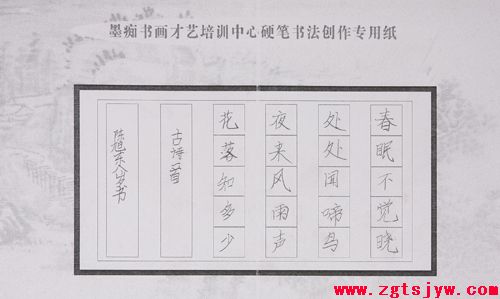 墨痴书画才艺培训中心硬笔书法创作专用纸
春眠不觉晓
处处闻啼鸟
夜来风雨声
花落知多少
古诗一首
陈旭东
www.zgtsjyw.com